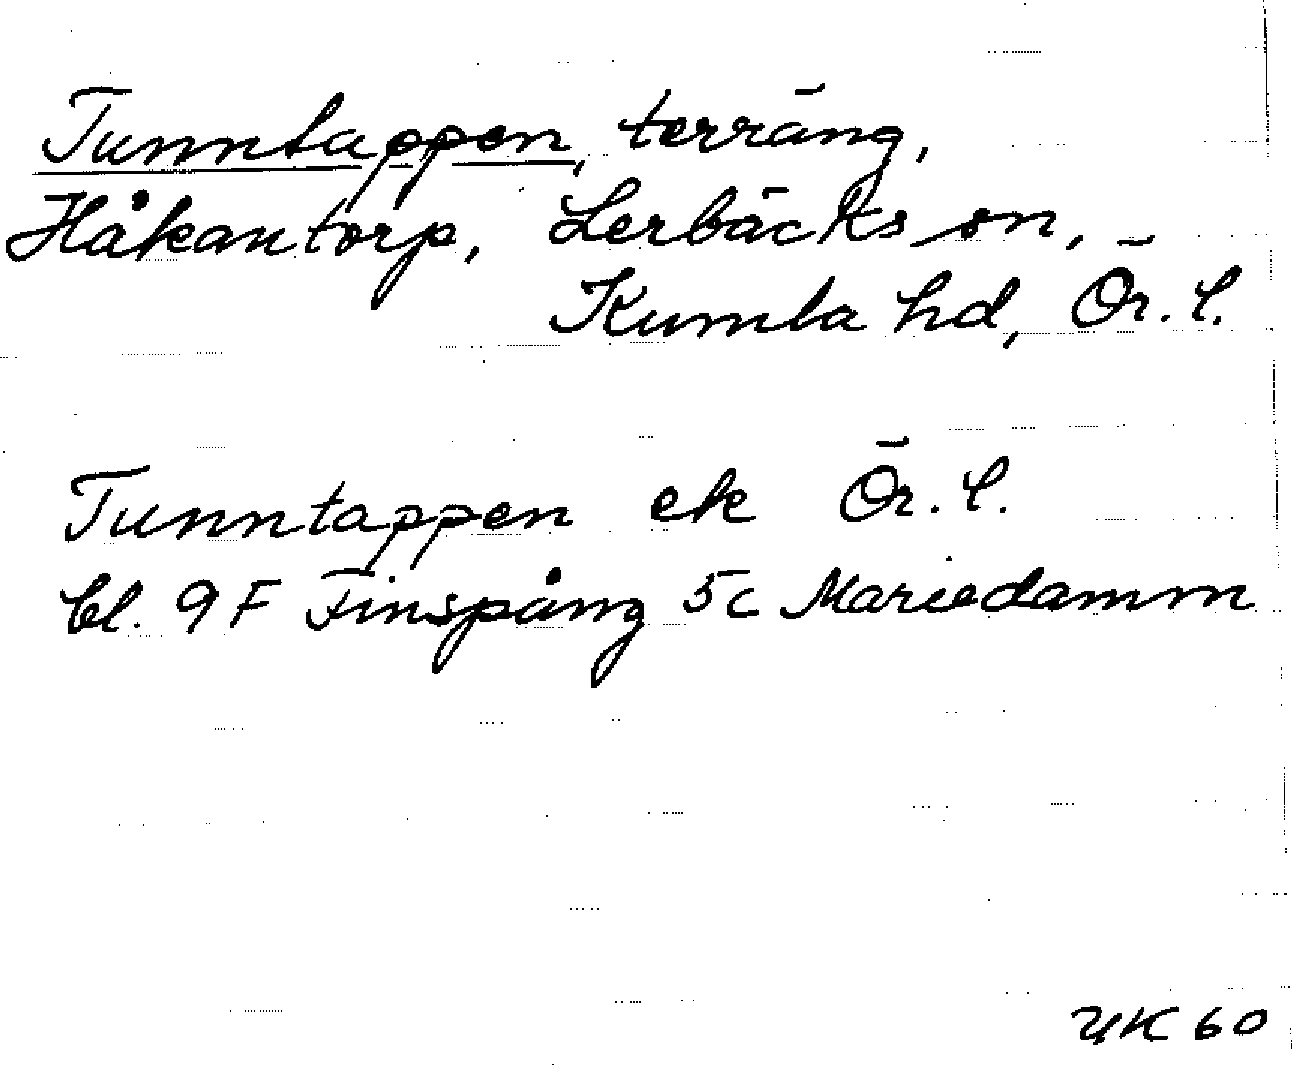 Tunntappen, terräng,
Håkantorp, Lerbäcks sn,
Kumla hd, Ör. l.
Tunntappen ek Ör. l.
bl. 9 F Finspång 5c Mariedamm
UK 60